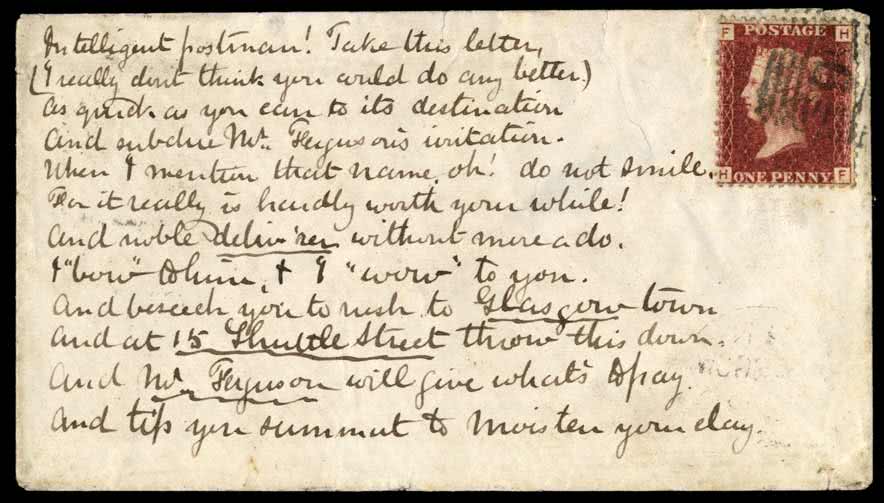 Intelligent postman! Take this letter,
(I really dont think you could do any better.)
As quick as you can to its destination
And subdue Mr. Ferguson's irritation.
When I mention that name, oh! do not smile,
For it really is hardly worth your while!
And noble deliv'rer, without more ado.
I "bow" to him, & I "wow" to you.
And beseech you to rush to Glasgow town
And at 15 Shuttle Street throw this down.
And Mr. Ferguson will give what's to pay.
And tip you summut to moisten your clay.
F POSTAGE H
H ONE PENNY F